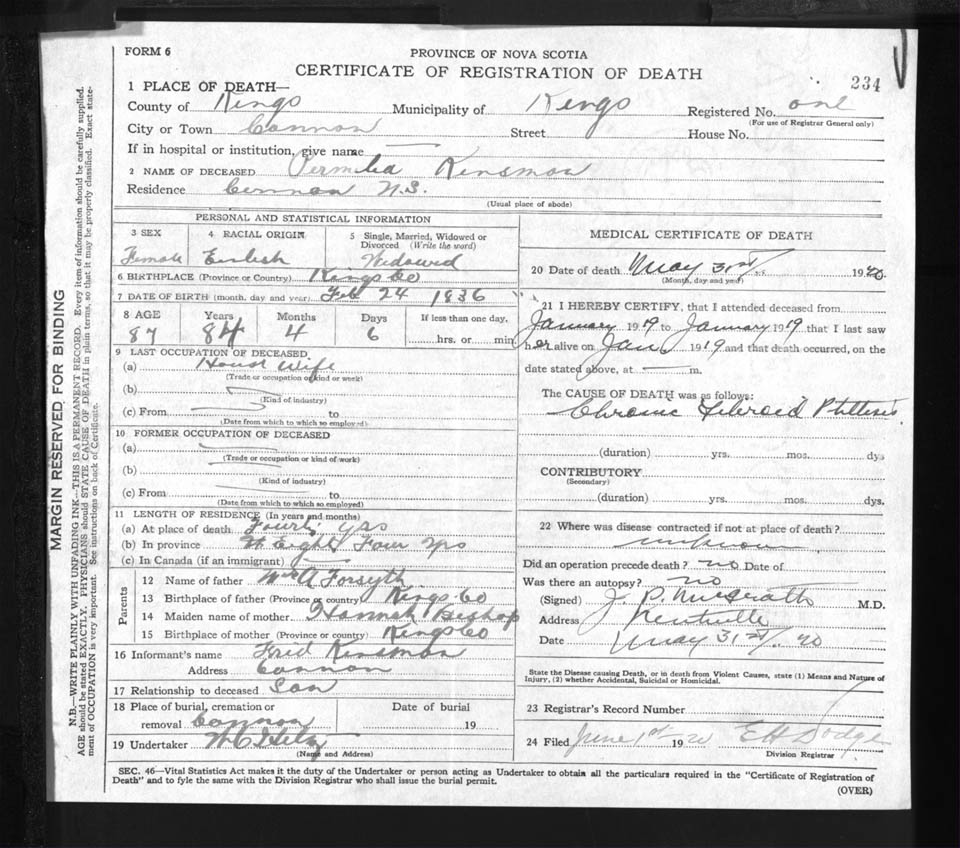 FORM 6
PROVINCE OF NOVA SCOTIA
CERTIFICATE OF REGISTRATION OF DEATH
234
1 PLACE OF DEATH—
County of Kings Municipality of Kings Registered No. one
(For use of Registrar General only)
City or Town Cannon Street House No.
If in hospital or institution, give name
2 NAME OF DECEASED Permelia Kinsman
Residence Cannan N.S.
(Usual place of abode)
PERSONAL AND STATISTICAL INFORMATION
3 SEX 4 RACIAL ORIGIN 5 Single, Married, Widowed or Divorced (Write the word)
Female English Widowed
6 BIRTHPLACE (Province or Country) Kings Co
7 DATE OF BIRTH (month, day and year) Feb 24 1836
8 AGE Years Months Days If less than one day,
87 84 4 6 hrs. or min
9 LAST OCCUPATION OF DECEASED
(a) House Wife
(Trade or occupation or kind or work)
(b)
(Kind of industry)
(c) From to
(Date from which to which so employed)
10 FORMER OCCUPATION OF DECEASED
(a)
(Trade or occupation or kind of work)
(b)
(Kind of industry)
(c) From to
(Date from which to which so employed)
11 LENGTH OF RESIDENCE (In years and months)
(a) At place of death yrs
(b) In province Eighty Four yrs
(c) In Canada (if an immigrant)
Parents
12 Name of father Wm A Forsyth
13 Birthplace of father (Province or country) Kings Co
14 Maiden name of mother Hannah Bishop
15 Birthplace of mother (Province or country) Kings Co
16 Informant's name Fred Kinsman
Address Cannon
17 Relationship to deceased Son
18 Place of burial, cremation or Date of burial
removal Cannon 19
19 Undertaker W C
(Name and Address)
MEDICAL CERTIFICATE OF DEATH
20 Date of death May 31st 1920
(Month, day and year)
21 I HEREBY CERTIFY, that I attended deceased from
January 1919 to January 1919 that I last saw
her alive on Jan. 1919 and that death occurred, on the
date stated above, at m.
The CAUSE OF DEATH was as follows:
Chronic Fibroid Phthisis
(duration) yrs. mos. dys
CONTRIBUTORY
(Secondary)
(duration) yrs. mos. dys.
22 Where was disease contracted if not at place of death?
unknown
Did an operation precede death? no Date of
Was there an autopsy? no
(Signed) J. P. McGrath M.D.
Address Kentville
Date May 31st 20
State the Disease causing Death, or in death from Violent Causes, state (1) Means and Nature of
Injury, (2) whether Accidental, Suicidal or Homicidal.
23 Registrar's Record Number
24 Filed June 1st 1920 E H Dodge
Division Registrar
SEC. 46—Vital Statistics Act makes it the duty of the Undertaker or person acting as Undertaker to obtain all the particulars required in the "Certificate of Registration of
Death" and to fyle the same with the Division Registrar who shall issue the burial permit.
(OVER)
MARGIN RESERVED FOR BINDING
N.B.—WRITE PLAINLY WITH UNFADING INK—THIS IS A PERMANENT RECORD. Every item of information should be carefully supplied.
AGE should be stated EXACTLY. PHYSICIANS should STATE CAUSE OF DEATH in plain terms, so that it may be properly classified. Exact state-
ment of OCCUPATION is very important. See instructions on back of Certificate.